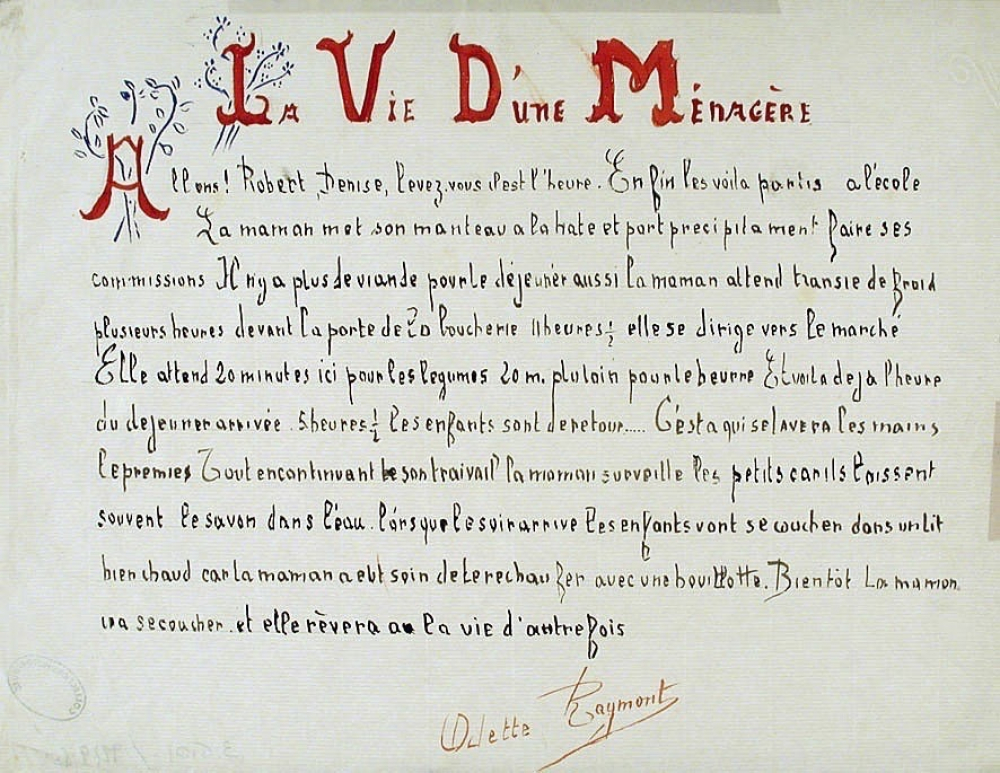 La Vie D'une Ménagère
Allons! Robert, Denise, levez.vous il est l'heure. Enfin les voila partis a l'école
La maman met son manteau a la hate et part precipitament faire ses
commissions Il n'y a plus de viande pour le déjeuner aussi la maman attend transie de froid
plusieurs heures devant la porte de la boucherie 11 heures ½ elle se dirige vers le marché
Elle attend 20 minutes ici pour les legumes 20 m. plu loin pour le beurre Et voila deja l'heure
du dejeuner arrivée. 5 heures ½ les enfants sont de retour..... C'est a qui se lavera les mains
le premier Tout en continuant son travail la maman surveille les petits car ils laissent
souvent le savon dans l'eau. lorsque le soir arrive les enfants vont se coucher dans un lit
bien chaud car la maman a eut soin de le rechauffer avec une bouillotte. Bientôt La maman
ira se coucher. et elle rèvera a la vie d'autrefois
Odette Raymont